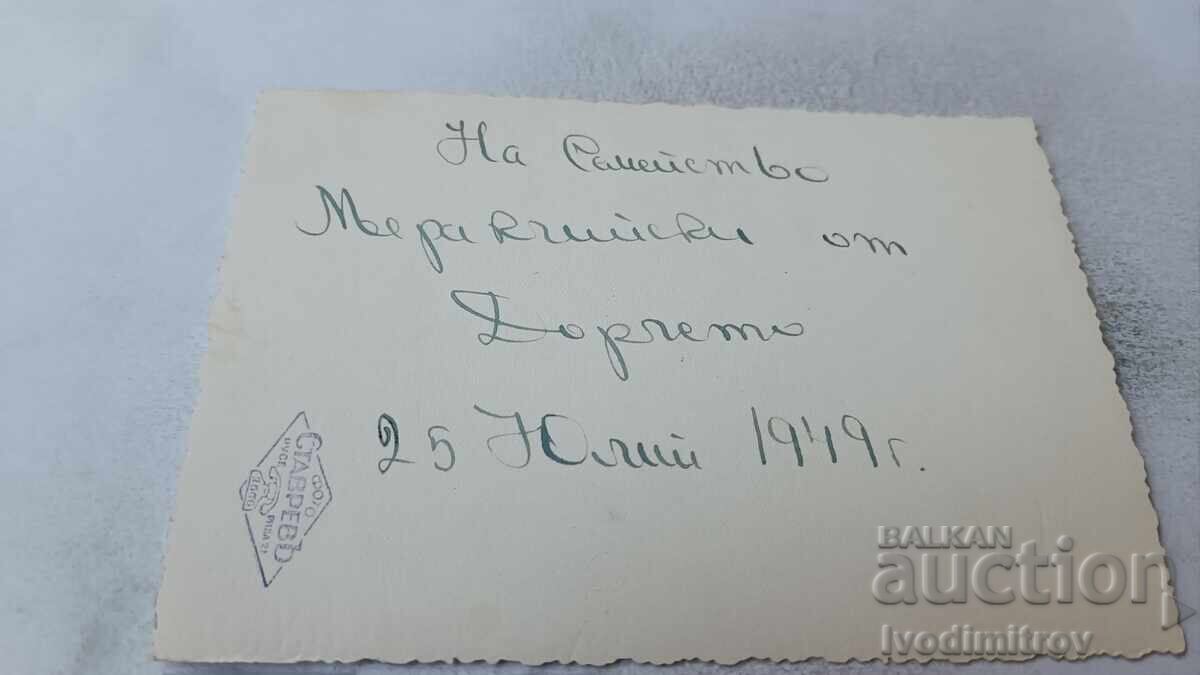 На Семейство
Меракчийски от
Дорчето
25 Юлий 1949 г.
ФОТО
СТАВРЕВЪ
РУСЕ
BALKAN
auction
Ivodimitrov